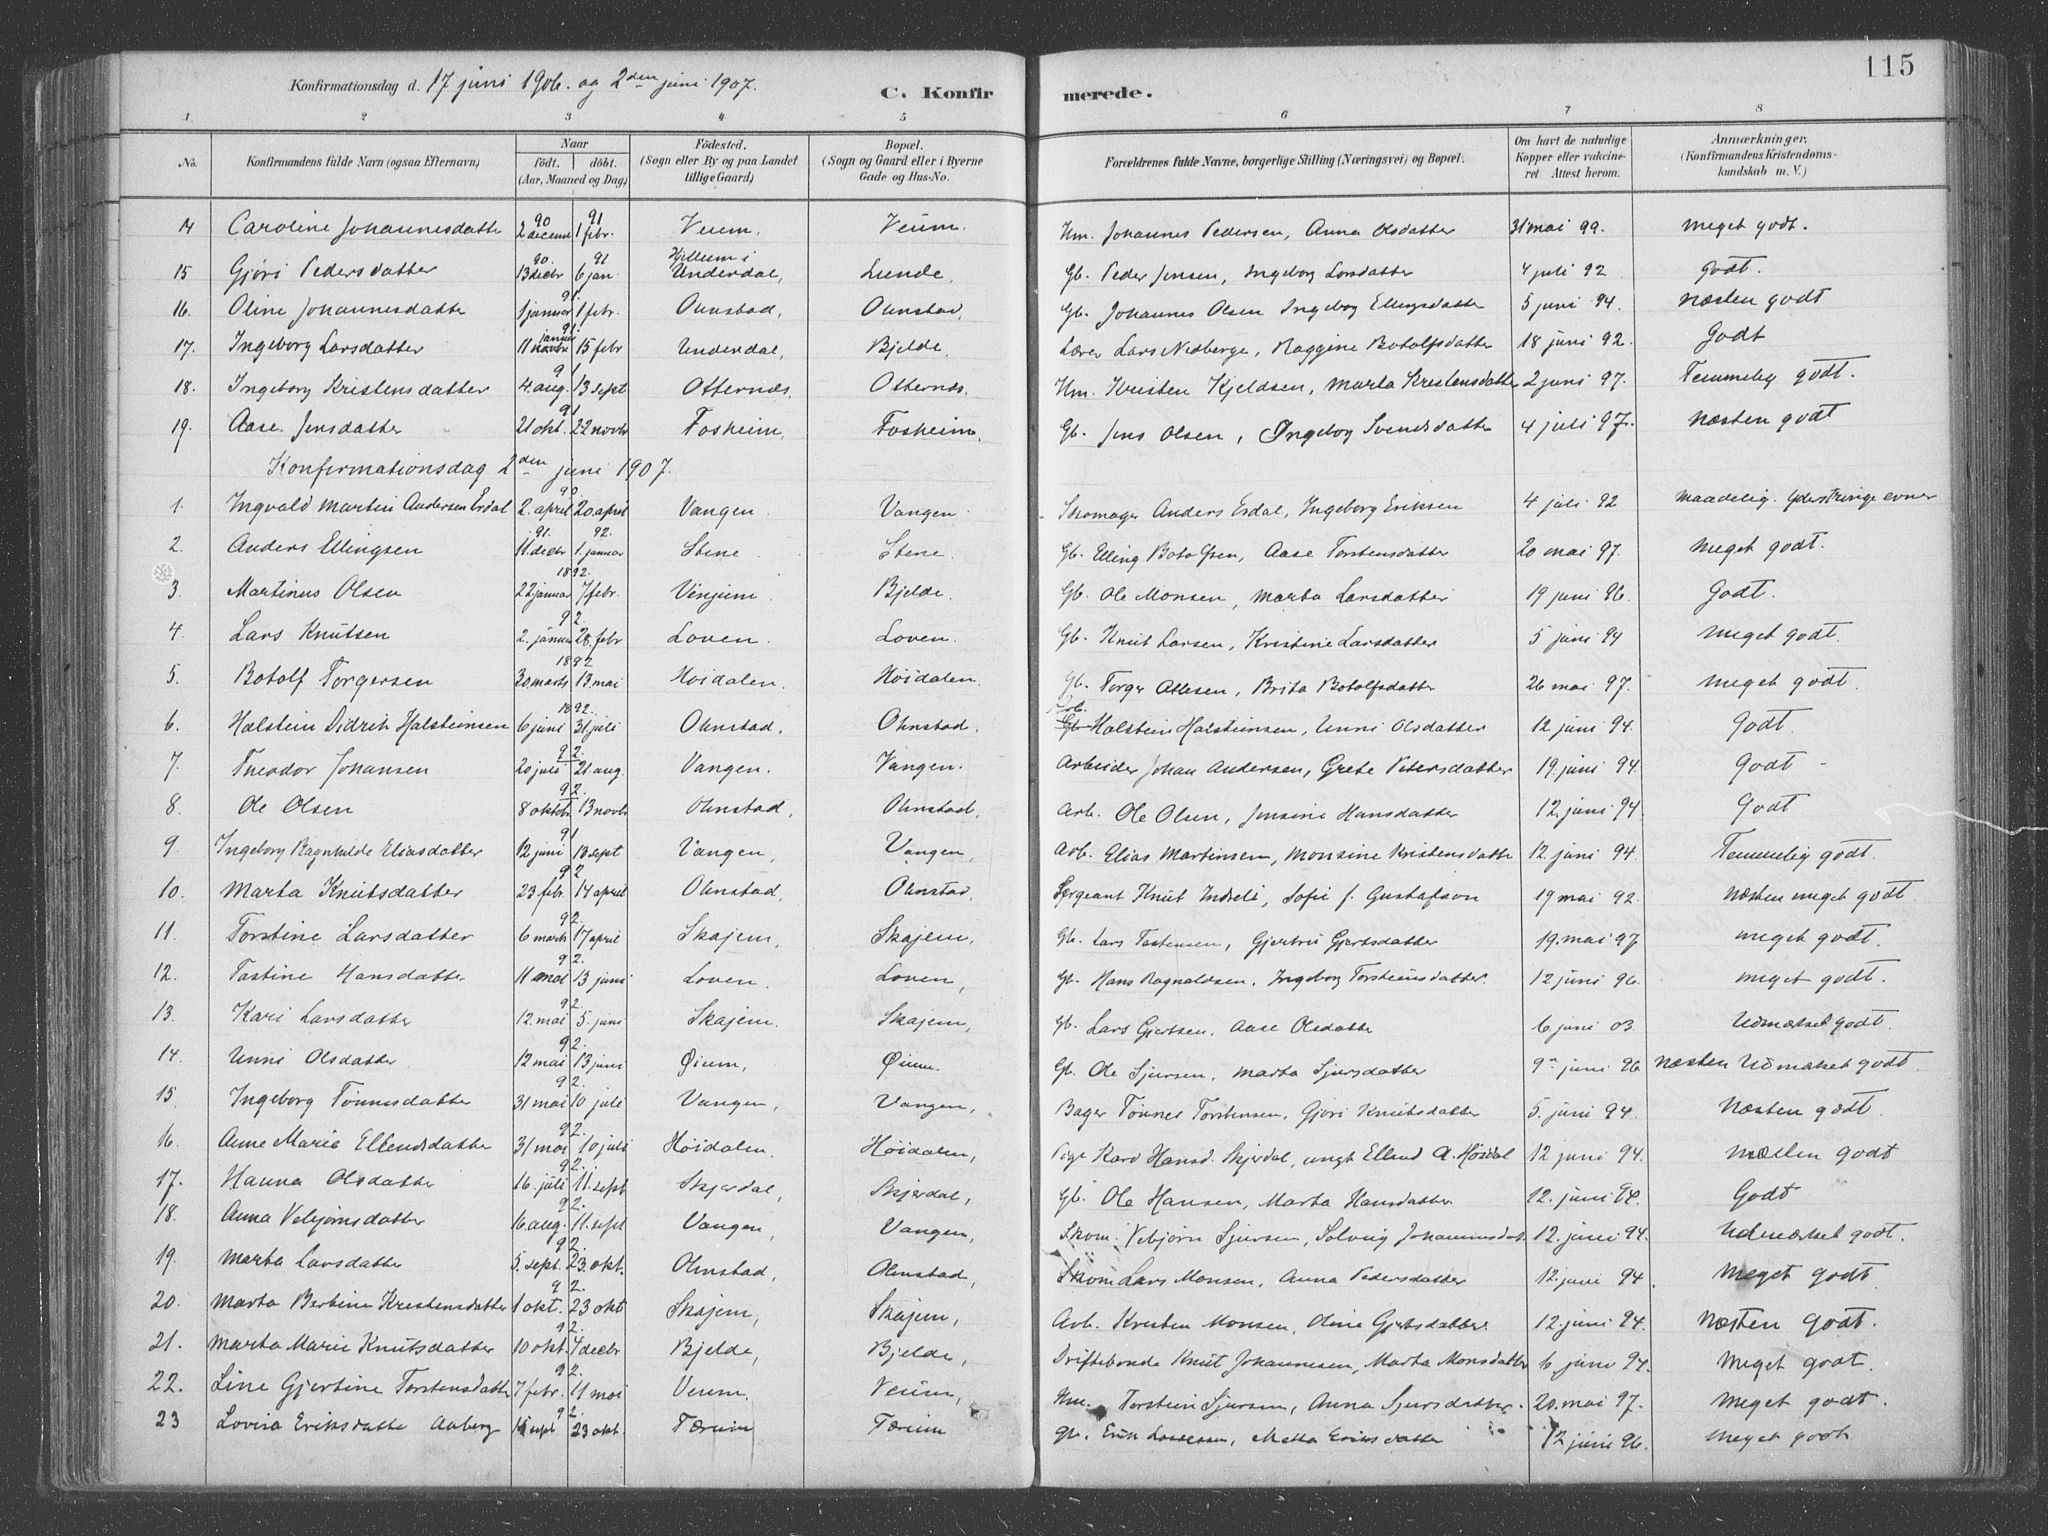 115
Konfirmationsdag d. 17 juni 1906. og 2den juni 1907.
C. Konfirmerede.
1. 2 3 4 5 6 7 8
No. Konfirmandens fulde Navn (ogsaa Efternavn) Naar födt. döbt. (Aar, Maaned og Dag) Födested. (Sogn eller By og paa Landet tillige Gaard) Bopæl. (Sogn og Gaard eller i Byerne Gade og Hus-No. Forældrenes fulde Navne, borgerlige Stilling (Næringsvei) og Bopæl. Om havt de naturlige Kopper eller vakcineret Attest herom. Anmærkninger. (Konfirmandens Kristendomskundskab m. V.)
14 Caroline Johannesdatte 90 2 decemb 91 1 febr. Veum. Veum. Hm. Johannes Pedersen, Anna Olsdatter 31 mai 99. meget godt.
15 Gjöri Pedersdatter 90. 13 decbr 91 6 jan. Underdal, Lunde, Gb. Peder Jensen, Ingeborg Larsdatter 4 juli 92 Godt.
16. Oline Johannesdatte 91. 1 januar 1 febr. Ohnstad, Ohnstad, Gb. Johannes Olsen Ingeborg Ellingsdatter 5 juni 94. næsten godt
17. Ingeborg Larsdatter 91 januar 11 novbr 15 febr Underdal, Bjelde, Lærer Lars Nedberge, Raggine Botolfsdatter 18 juni 92. Godt
18. Ingeborg Kristensdatter 91 4. aug. 13 sept Otternæs, Otternæs. Hm. Kristen Kjeldsen, Marta Kristensdatter 2 juni 97. Temmelig godt.
19. Aase Jensdatter 91 21 okt. 22 novbr Fosheim, Fosheim, Gb. Jens Olsen, Ingeborg Svendsdatter 4 juli 97. næsten godt
Konfirmationsdag 2den juni 1907.
1. Ingvald Martin Andersen Esdal 90 2. april 20 april Vangen. Vangen. Skomager Anders Esdal, Ingeborg Eriksen 4 juli 92 maadelig. yderst ringe evner
2. Anders Ellingsen 91. 11. decbr 92. 1. januar Stene. Stene. Gb. Elling Botolfsen, Aase Torstensdatter 20 mai 97. meget godt.
3. Martinus Olsen 1892. 22 januar 7 febr. Vinjum. Bjelde. Gb. Ole Monsen, Marta Larsdatter 19 juni 96. Godt.
4. Lars Knutsen 92. 2. januar 28. febr Loven. Loven. Gb. Knut Larsen, Kristine Larsdatter 5 juni 94 meget godt.
5. Botolf Torgersen 1892 30 marts 13. mai Höidalen. Höidalen. Gb. Torger Atlesen, Brita Botolfsdatter 26 mai 97. meget godt.
6. Halstein Didrik Halsteinsen 1892. 6 juni 31 juli Ohnstad, Ohnstad, Arb. Gb. Halstein Halsteinsen, Unni Olsdatter 12 juni 94. Godt.
7. Theodor Johansen 92. 20 juli 21 aug. Vangen. Vangen. Arbeider Johan Andersen, Grete Petersdatter 19. juni 94. Godt
8. Ole Olsen 92. 8 oktobr 13 novbr Ohnstad, Ohnstad, Arb. Ole Olsen, Jensine Hansdatter 12. juni 94. Godt
9. Ingeborg Ragnhilde Eliasdatter 91 12 juni 13 sept Vangen, Vangen, Arb. Elias Martinsen, Monsine Kristensdatte 12. juni 94. Temmelig godt.
10. Marta Knutsdatter 92 23 feb. 14 april Ohnstad, Ohnstad, Sergeant Knut Indreli, Sofie J. Gustafson 19 mai 92. næsten meget godt.
11. Torstine Larsdatter 92. 6 marts 17 april Skajem, Skajem, Gb. Lars Torstensen, Gjertrud Gjertsdatter 19. mai 97 meget godt.
12. Tostine Hansdatte 92. 11 mai 13 juni Loven. Loven, Gb. Hans Ragnaldsen, Ingeborg Torsteinsdatter 12 juni 96. meget godt.
13. Kari Larsdatter 92. 12. mai 5. juni Skajem. Skajem, Gb. Lars Gjertsen, Aase Olsdatter 6 juni 03. Udmærket godt.
14. Unni Olsdatter 92. 12 mai 13 juni Øium, Øium. Gb. Ole Sjursen, Marta Sjursdatter 9 juni 96 næsten Udmærket godt.
15. Ingeborg Tönnesdatter 92. 31 mai 10 juli Vangen, Vangen, Bager Tönnes Torstensen, Gjöri Knutsdatter 5. juni 94. Næsten godt.
16. Anne Marie Ellendsdatter 92. 31 mai 10 juli Höidalen. Höidalen, Pige Kari Hansd. Skjerdal, ungk Ellend A. Höidal 12 juni 94. næsten godt
17. Hanna Olsdatter 92. 16. juli 11. sept Skjerdal, Skjerdal, Gb. Ole Hansen, Marta Hansdatter 12. juni 94. Godt
18. Anna Vebjörnsdatter 92. 16 aug. 11. sept Vangen, Vangen, Skom. Vebjörn Sjursen, Solveig Johannesdat. 12. juni 94. Udmærket godt.
19. Marta Larsdatter 92. 5. sept. 23. okt. Ohnstad, Ohnstad, Skom Lars Monsen, Anna Pedersdatter 12. juni 94. Meget godt.
20. Marta Bertine Kristensdatter 92. 1 okt. 23 okt Skajem, Skajem, Arb. Kristen Monsen, Oline Gjertsdatter. 12. juni 94. Næsten godt.
21. Marta Marie Knutsdatter 92. 10 okt. 4 decbr Bjelde, Bjelde, Driftebonde Knut Johannesen, Marta Monsdatter 6 juni 94. Meget godt.
22. Line Gjertine Torstensdatter 92. 7 febr. 11 mai Veum, Veum, Hm. Torstein Sjursen, Anna Sjursdatter. 20. mai 97. Meget godt.
23 Lovisa Eriksdatte Aaberg 92. sept 23 okt. Tærum Tærum Gb. Erik Lassesen, Metta Eriksdatte 12 juni 96. Meget godt